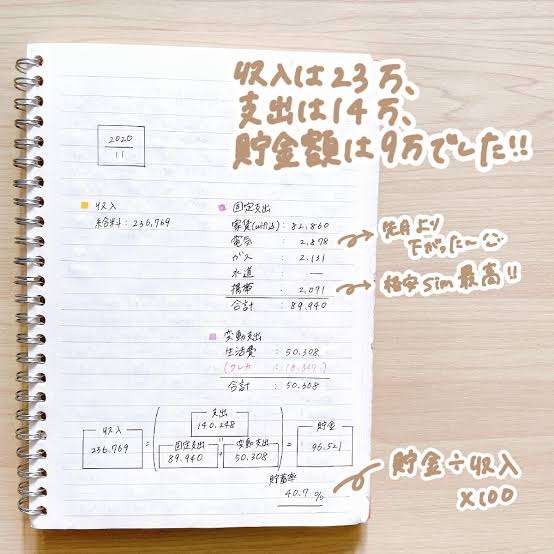 収入は23万、
支出は14万、
貯金額は9万でした!!
2020
11
収入
給料 : 236,769
固定支出
家賃(wifi込) : 82,860
電気 : 2,878
ガス : 2,131
水道 : —
携帯 : 2,071
合計 : 89,940
先月より
下がった〜
格安sim最高!!
変動支出
生活費 : 50,308
(クレカ :
合計 : 50,308
支出
140,248
収入
236,769
=
固定支出
89,940
+
変動支出
50,308
=
貯金
96,521
貯蓄率
40.7 %
貯金÷収入
×100